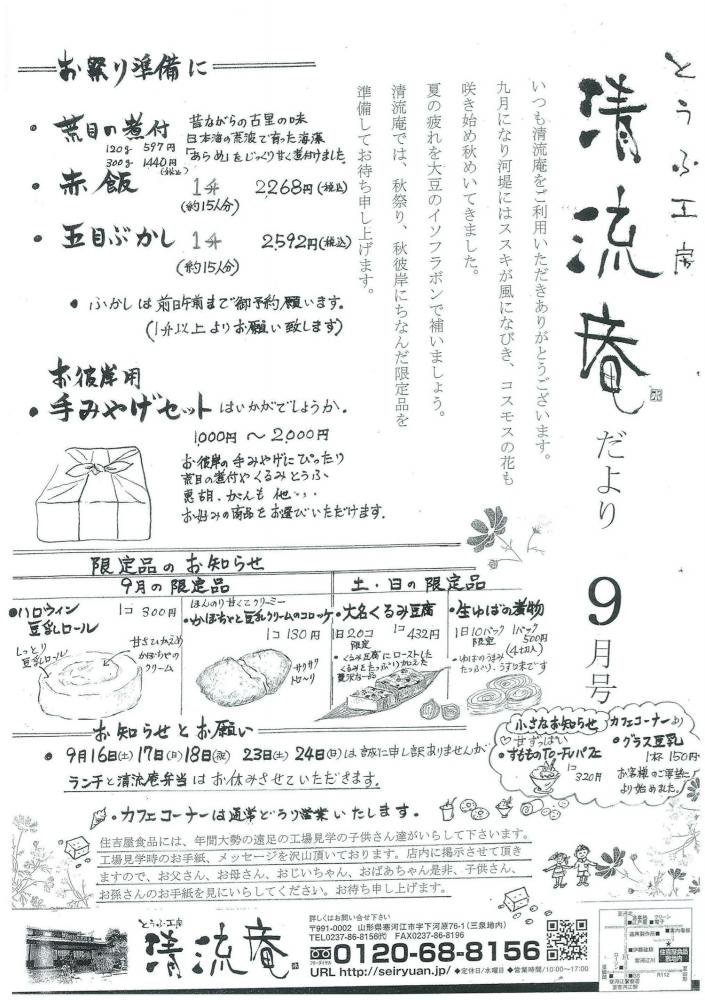 とうふ工房
清流庵
だより
9月号
いつも清流庵をご利用いただきありがとうございます。
九月になり河堤にはススキが風になびき、コスモスの花も
咲き始め秋めいてきました。
夏の疲れを大豆のイソフラボンで補いましょう。
清流庵では、秋祭り、秋彼岸にちなんだ限定品を
準備してお待ち申し上げます。
お祭り準備に
・荒目の煮付
120g 597円
300g 1440円(税込)
昔ながらの古里の味
日本海の荒波で育った海藻
「あらめ」をじっくり甘く煮付けました。
・赤飯 1升 2268円(税込)
(約15人分)
・五目ぶかし 1升 2,592円(税込)
(約15人分)
・ふかしは前日午前まで御予約願います。
(1升以上よりお願い致します)
お彼岸用
・手みやげセットはいかがでしょうか。
1,000円〜2,000円
お彼岸の手みやげにぴったり
荒目の煮付やくるみとうふ、
恵胡、がんも他・・・
お好みの商品をお選びいただけます。
限定品のお知らせ
9月の限定品
・ハロウィン豆乳ロール
1コ 300円
しっとり豆乳ロール
甘さひかえめ
かぼちゃの
クリーム
ほんのり甘くてクリーミー
・かぼちゃと豆乳クリームのコロッケ
1コ 130円
サクサク
トローリ
土・日の限定品
・大名くるみ豆腐
1日20コ限定
1コ 432円
・くるみ豆腐にローストした
くるみをたっぷり加えた
贅沢な一品
・生ゆばの煮物
1日10パック限定
1パック 500円
(4切入)
・ゆばのうまみ
たっぷり、うす口本です
お知らせとお願い
・9月16日(土)17日(日)18日(祝) 23日(土)24日(日)は誠に申し訳ありませんが
ランチと清流庵弁当はお休みさせていただきます。
・カフェコーナーは通常どうり営業いたします。
小さなお知らせ
甘ずっぱい
・すももTo-Fuパフェ
1コ 320円
カフェコーナーより
・グラス豆乳
1杯 150円
お客様のご要望に
より始めました。
住吉屋食品には、年間大勢の遠足の工場見学の子供さん達がいらして下さいます。
工場見学時のお手紙、メッセージを沢山頂いております。店内に掲示させて頂き
ますので、お父さん、お母さん、おじいちゃん、おばあちゃん是非、子供さん、
お孫さんのお手紙を見にいらしてください。お待ち申し上げます。
とうふ工房
清流庵
詳しくはお問い合せ下さい
〒991-0002 山形県寒河江市字下河原76-1(三泉地内)
TEL0237-86-8156㈹ FAX0237-86-8196
フリーダイヤル 0120-68-8156
URL http://seiryuan.jp/ ◆定休日/水曜日 ◆営業時間/10:00〜17:00
R112